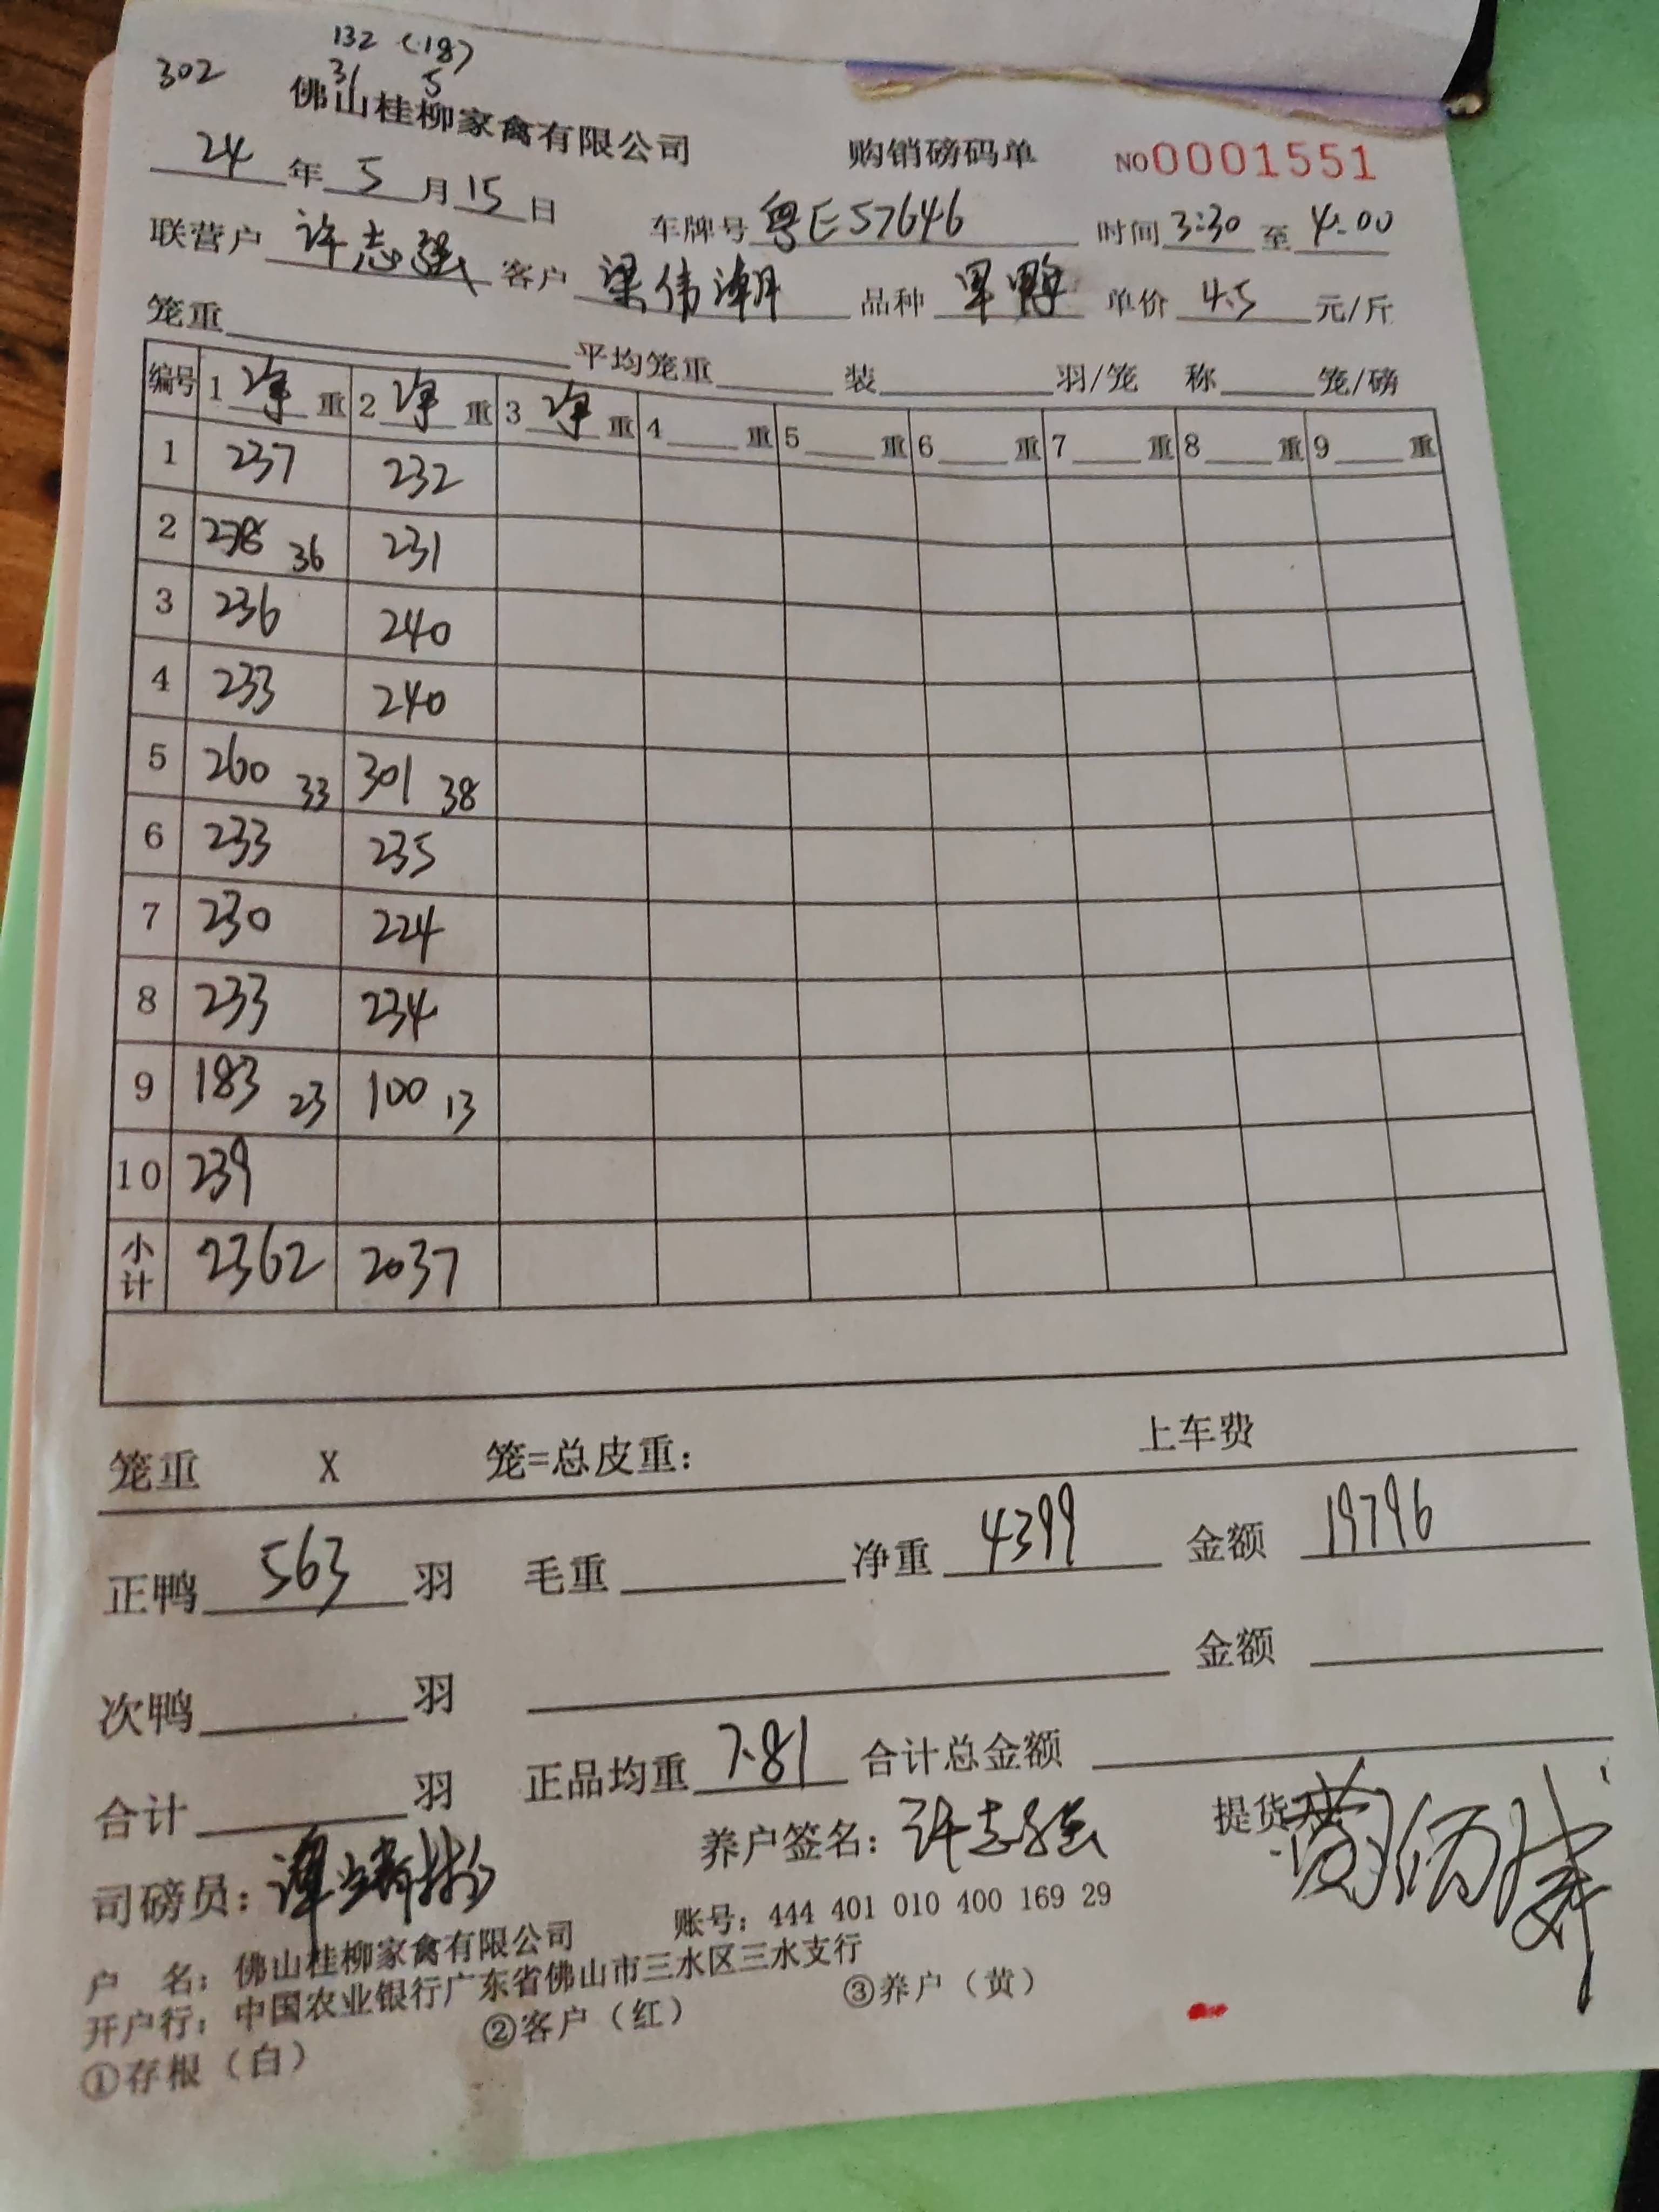 132 (18)
302 31 5
佛山桂柳家禽有限公司 购销磅码单 NO0001551
24年5月15日
联营户 许志强 车牌号 粤E57646 时间 3:30 至 4:00
客户 梁伟潮 品种 单价 4.5 元/斤
笼重 平均笼重 装 羽/笼 称 笼/磅
编号 1净重 2净重 3净重 4重 5重 6重 7重 8重 9重
1 237 232
2 278 36 231
3 236 240
4 233 240
5 260 33 301 38
6 233 235
7 230 224
8 233 234
9 183 23 100 13
10 239
小计 2362 2037
笼重 X 笼=总皮重: 上车费
正鸭 563 羽 毛重 净重 4399 金额 19796
次鸭 羽 金额
合计 羽 正品均重 7.81 合计总金额
司磅员: 养户签名: 许志强 提货
户 名: 佛山桂柳家禽有限公司 账号: 444 401 010 400 169 29
开户行: 中国农业银行广东省佛山市三水区三水支行
①存根（白） ②客户（红） ③养户（黄）